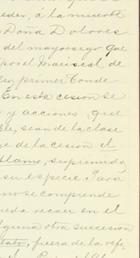 eder, á la muerte
Dona Dolores
del mayorazgo que
por el Mariscal de
primer Conde
En esta cesion se
y acciones, que
sean de la clase
e de la cesion el
suprimido
su especie. Para
no se comprende
recaer en el
otra sucesion
fuera de la refe